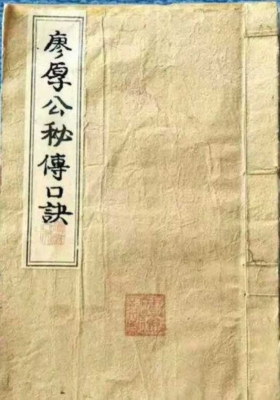 廖厚公秘傳口訣